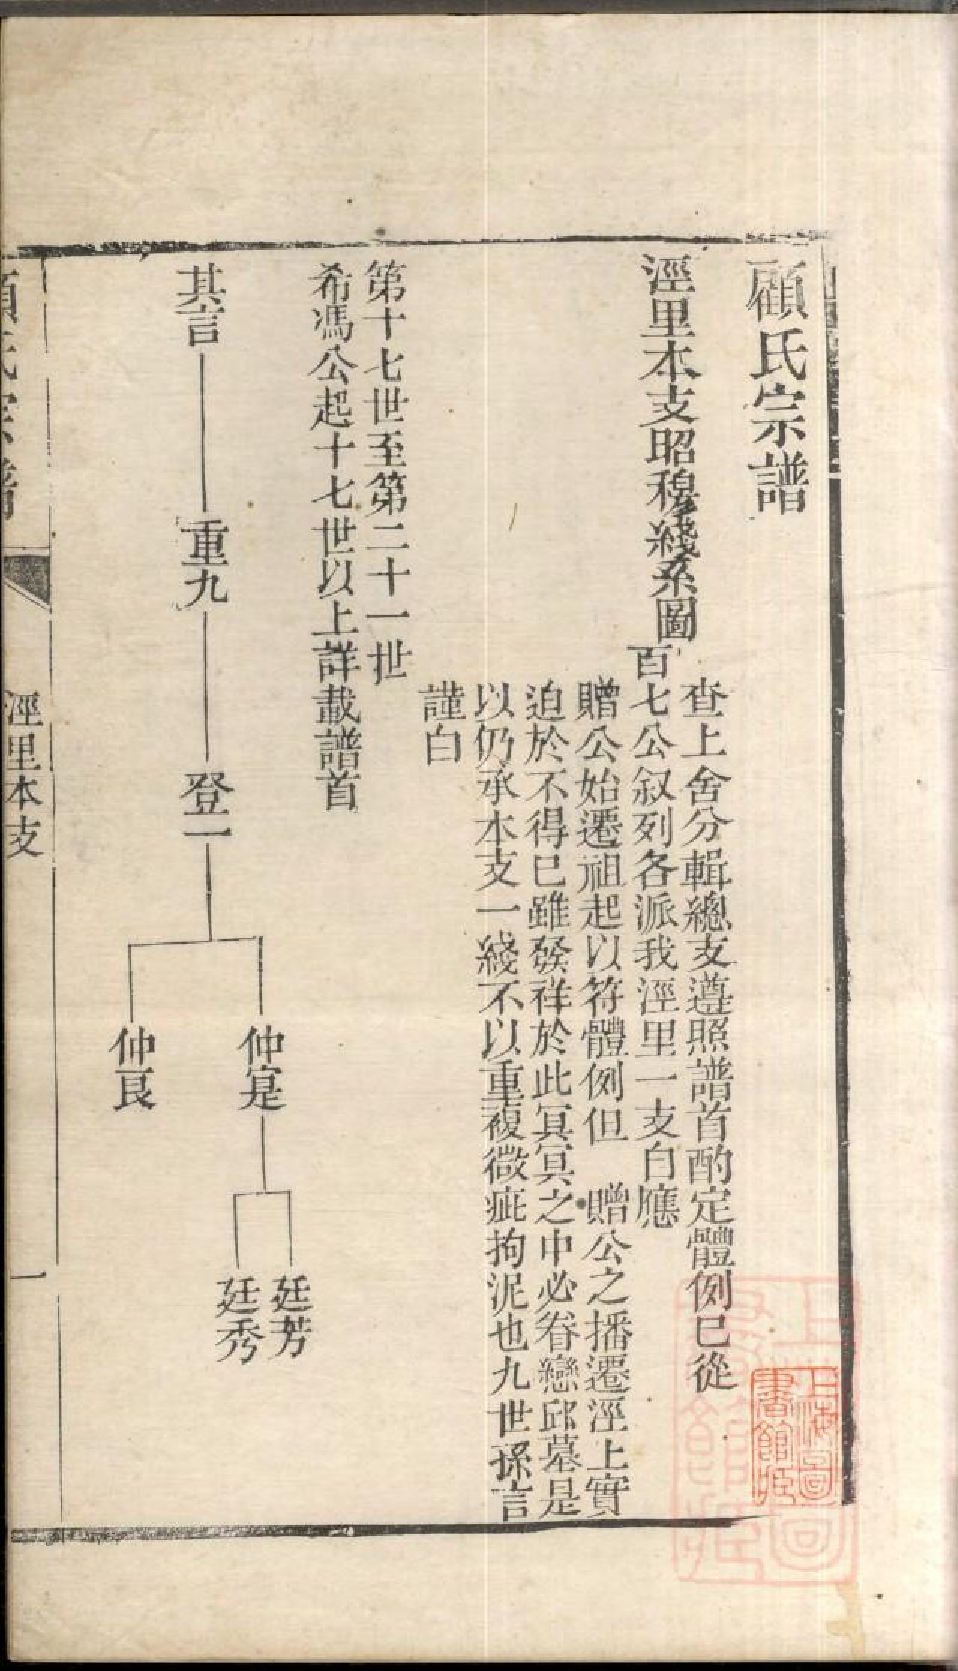 顧氏宗譜
涇里本支昭穆綫系圖
查上舍分輯總支遵照譜首酌定體例已從
百七公叙列各派我涇里一支自應
贈公始遷祖起以符體例但 贈公之播遷涇上實
迫於不得已雖發祥於此冥冥之中必眷戀邱墓是
以仍承本支一綫不以重複微疵拘泥也九世孫言
謹白
第十七世至第二十一世
希馮公起十七世以上詳載譜首
其言
重九
登一
仲寔
仲良
廷芳
廷秀
顧氏宗譜
涇里本支
一
上海圖書館藏